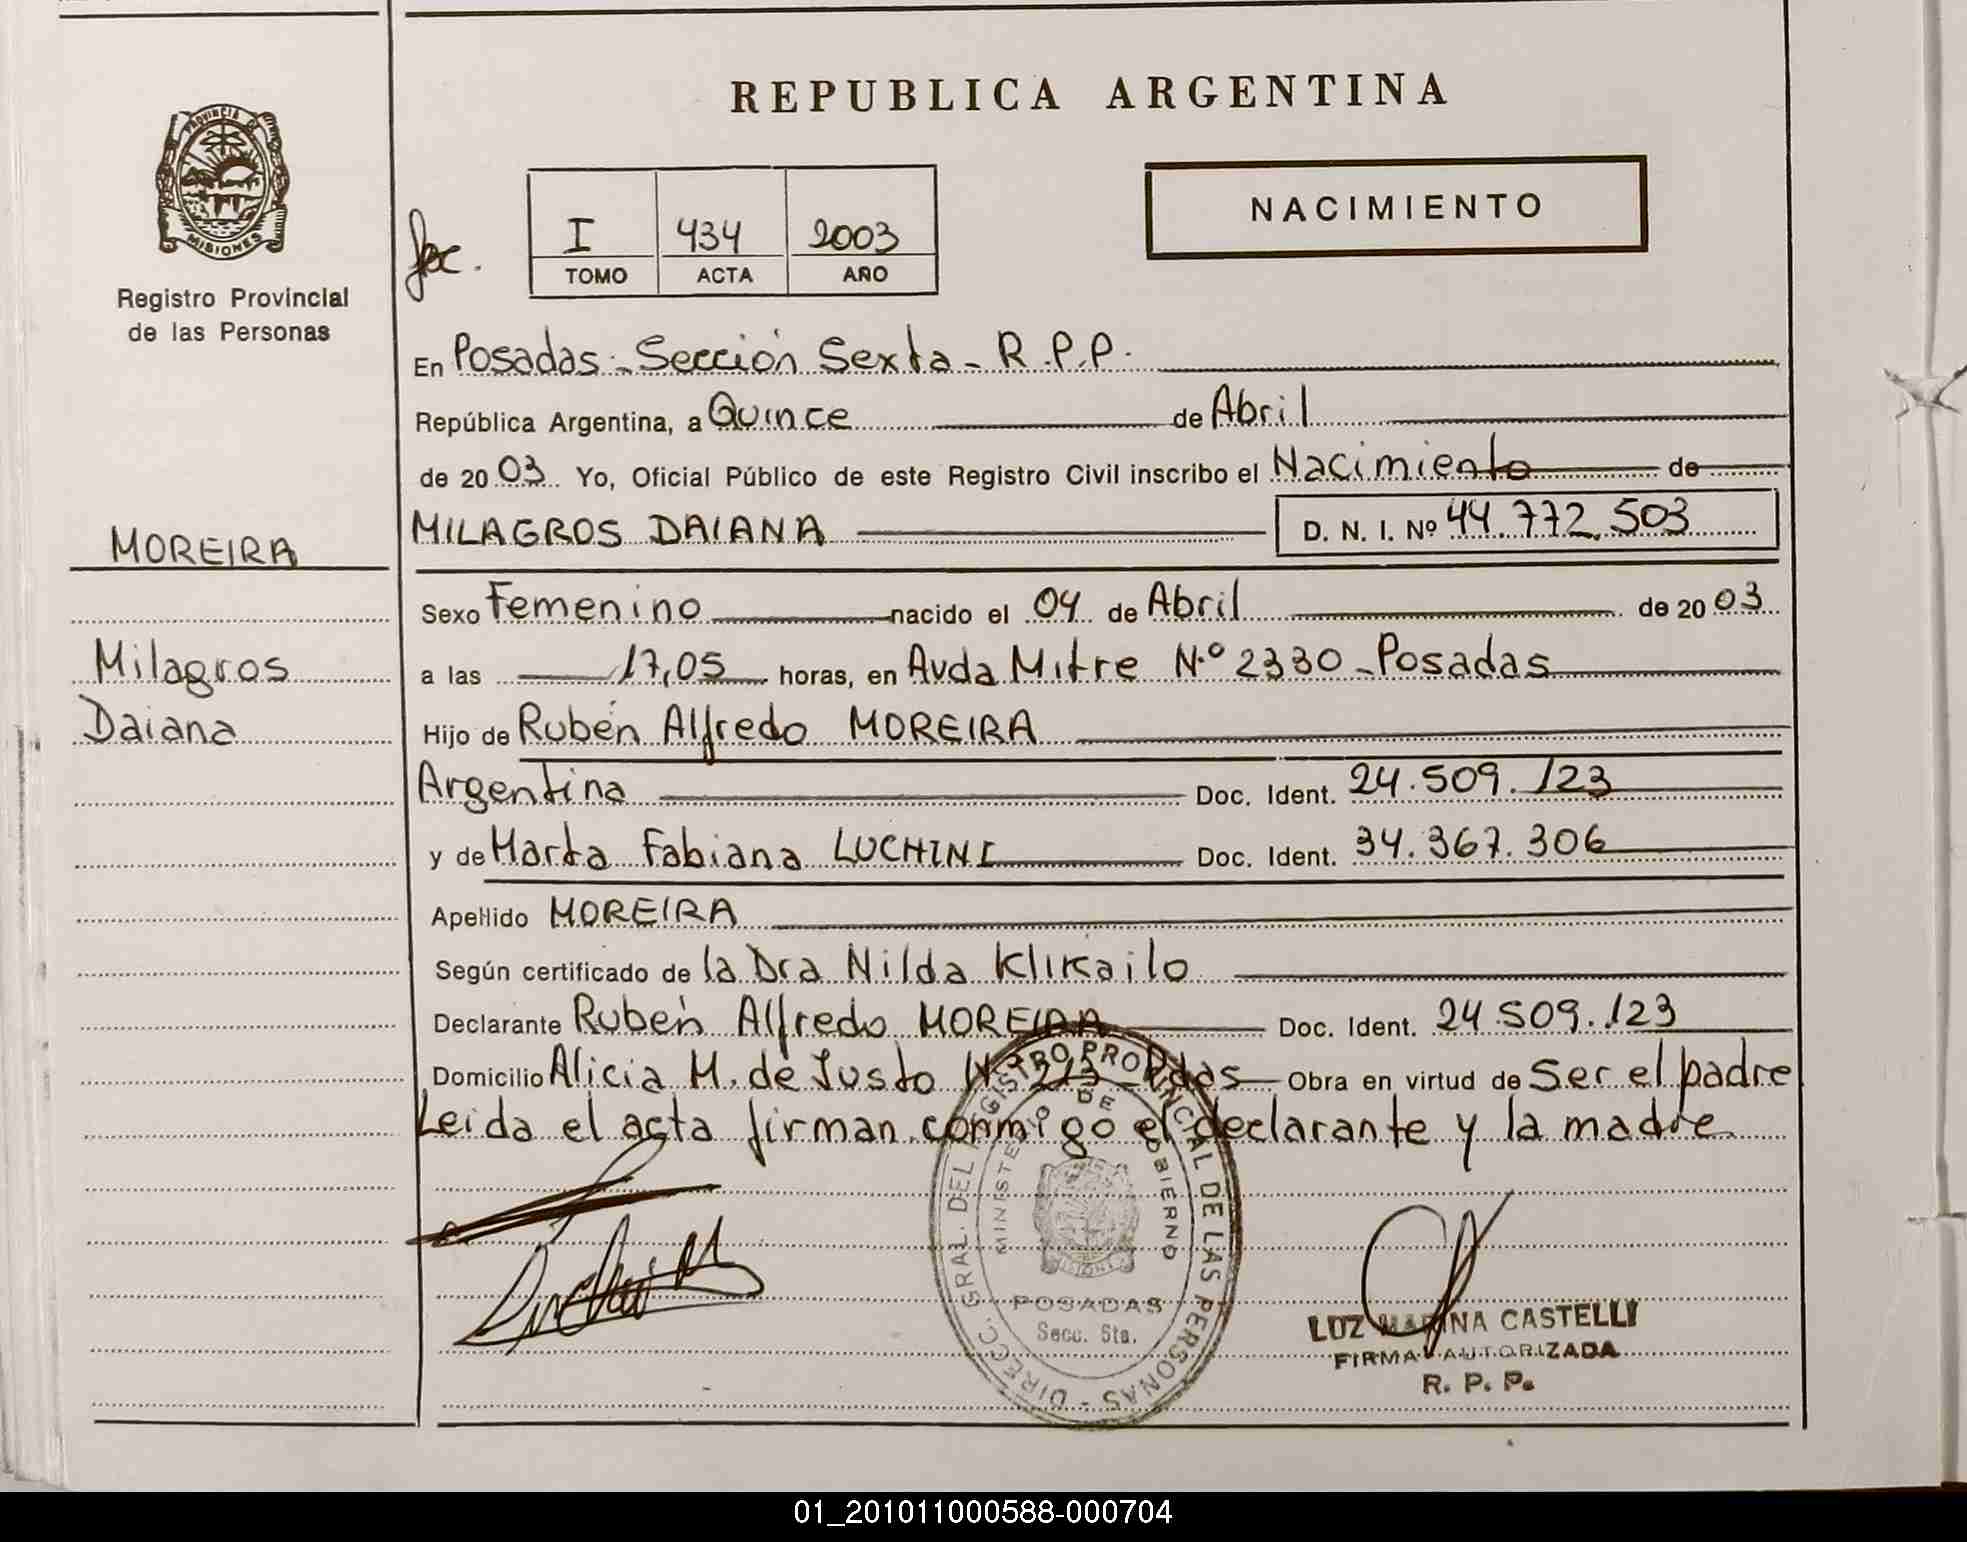 REPUBLICA ARGENTINA
PROVINCIA DE
MISIONES
Registro Provincial
de las Personas
NACIMIENTO
I 434 2003
TOMO ACTA AÑO
En Posadas - Sección Sexta - R.P.P.
República Argentina, a Quince de Abril
de 2003. Yo, Oficial Público de este Registro Civil inscribo el Nacimiento de
MOREIRA
MILAGROS DAIANA D. N. I. Nº 44.772.503
Sexo Femenino nacido el 04 de Abril de 2003
Milagros
Daiana
a las 17,05 horas, en Avda Mitre N.º 2330 - Posadas
Hijo de Rubén Alfredo MOREIRA
Argentina Doc. Ident. 24.509.123
y de Marta Fabiana LUCHINI Doc. Ident. 34.367.306
Apellido MOREIRA
Según certificado de la Dra Nilda Klikailo
Declarante Rubén Alfredo MOREIRA Doc. Ident. 24.509.123
Domicilio Alicia M. de Justo Nº 213 - Pdas Obra en virtud de Ser el padre
Leida el acta firman conmigo el declarante y la madre
DIRECC. GRAL. DEL REGISTRO PROVINCIAL DE LAS PERSONAS -
MINISTERIO DE GOBIERNO
MISIONES
POSADAS
Secc. 6ta.
LUZ MARINA CASTELLI
FIRMA AUTORIZADA
R. P. P.
01_201011000588-000704